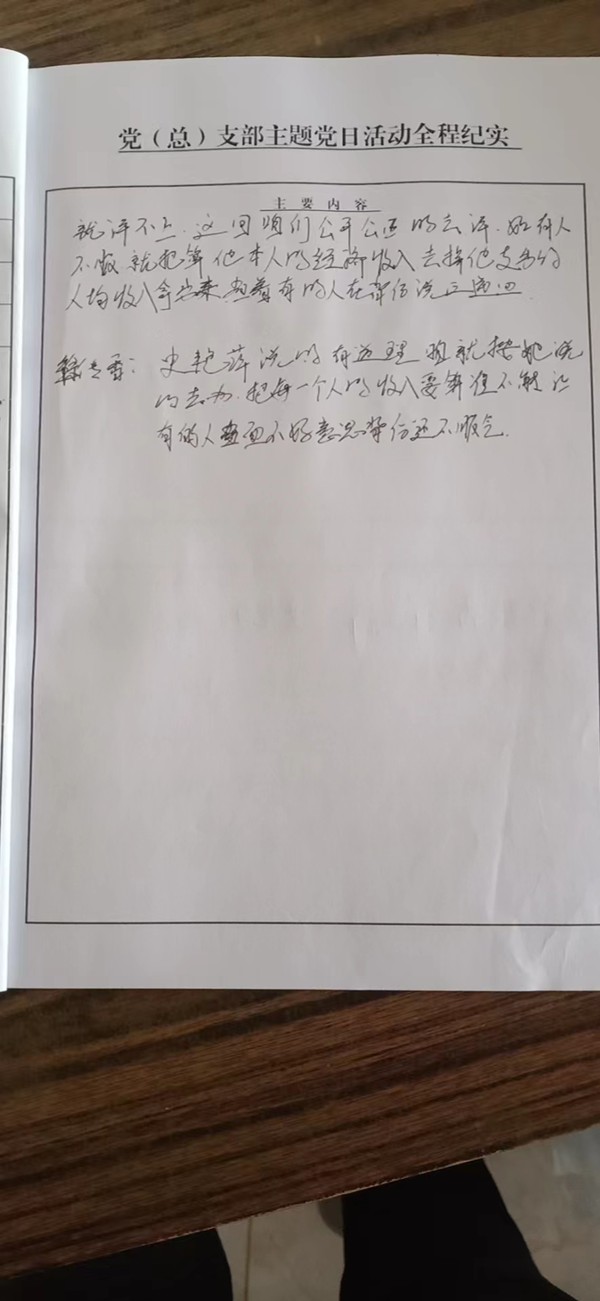 党（总）支部主题党日活动全程纪实
主要内容
就评不上. 这回咱们公平公正的去评. 如有人
不服就把算他本人的经济收入去掉他支出的
人均收入拿出来 有的人在
史艳萍说的有道理 咱就按她说
的去办. 把每一个人的收入要算准不能让
有的人 不好意思 不顺气.